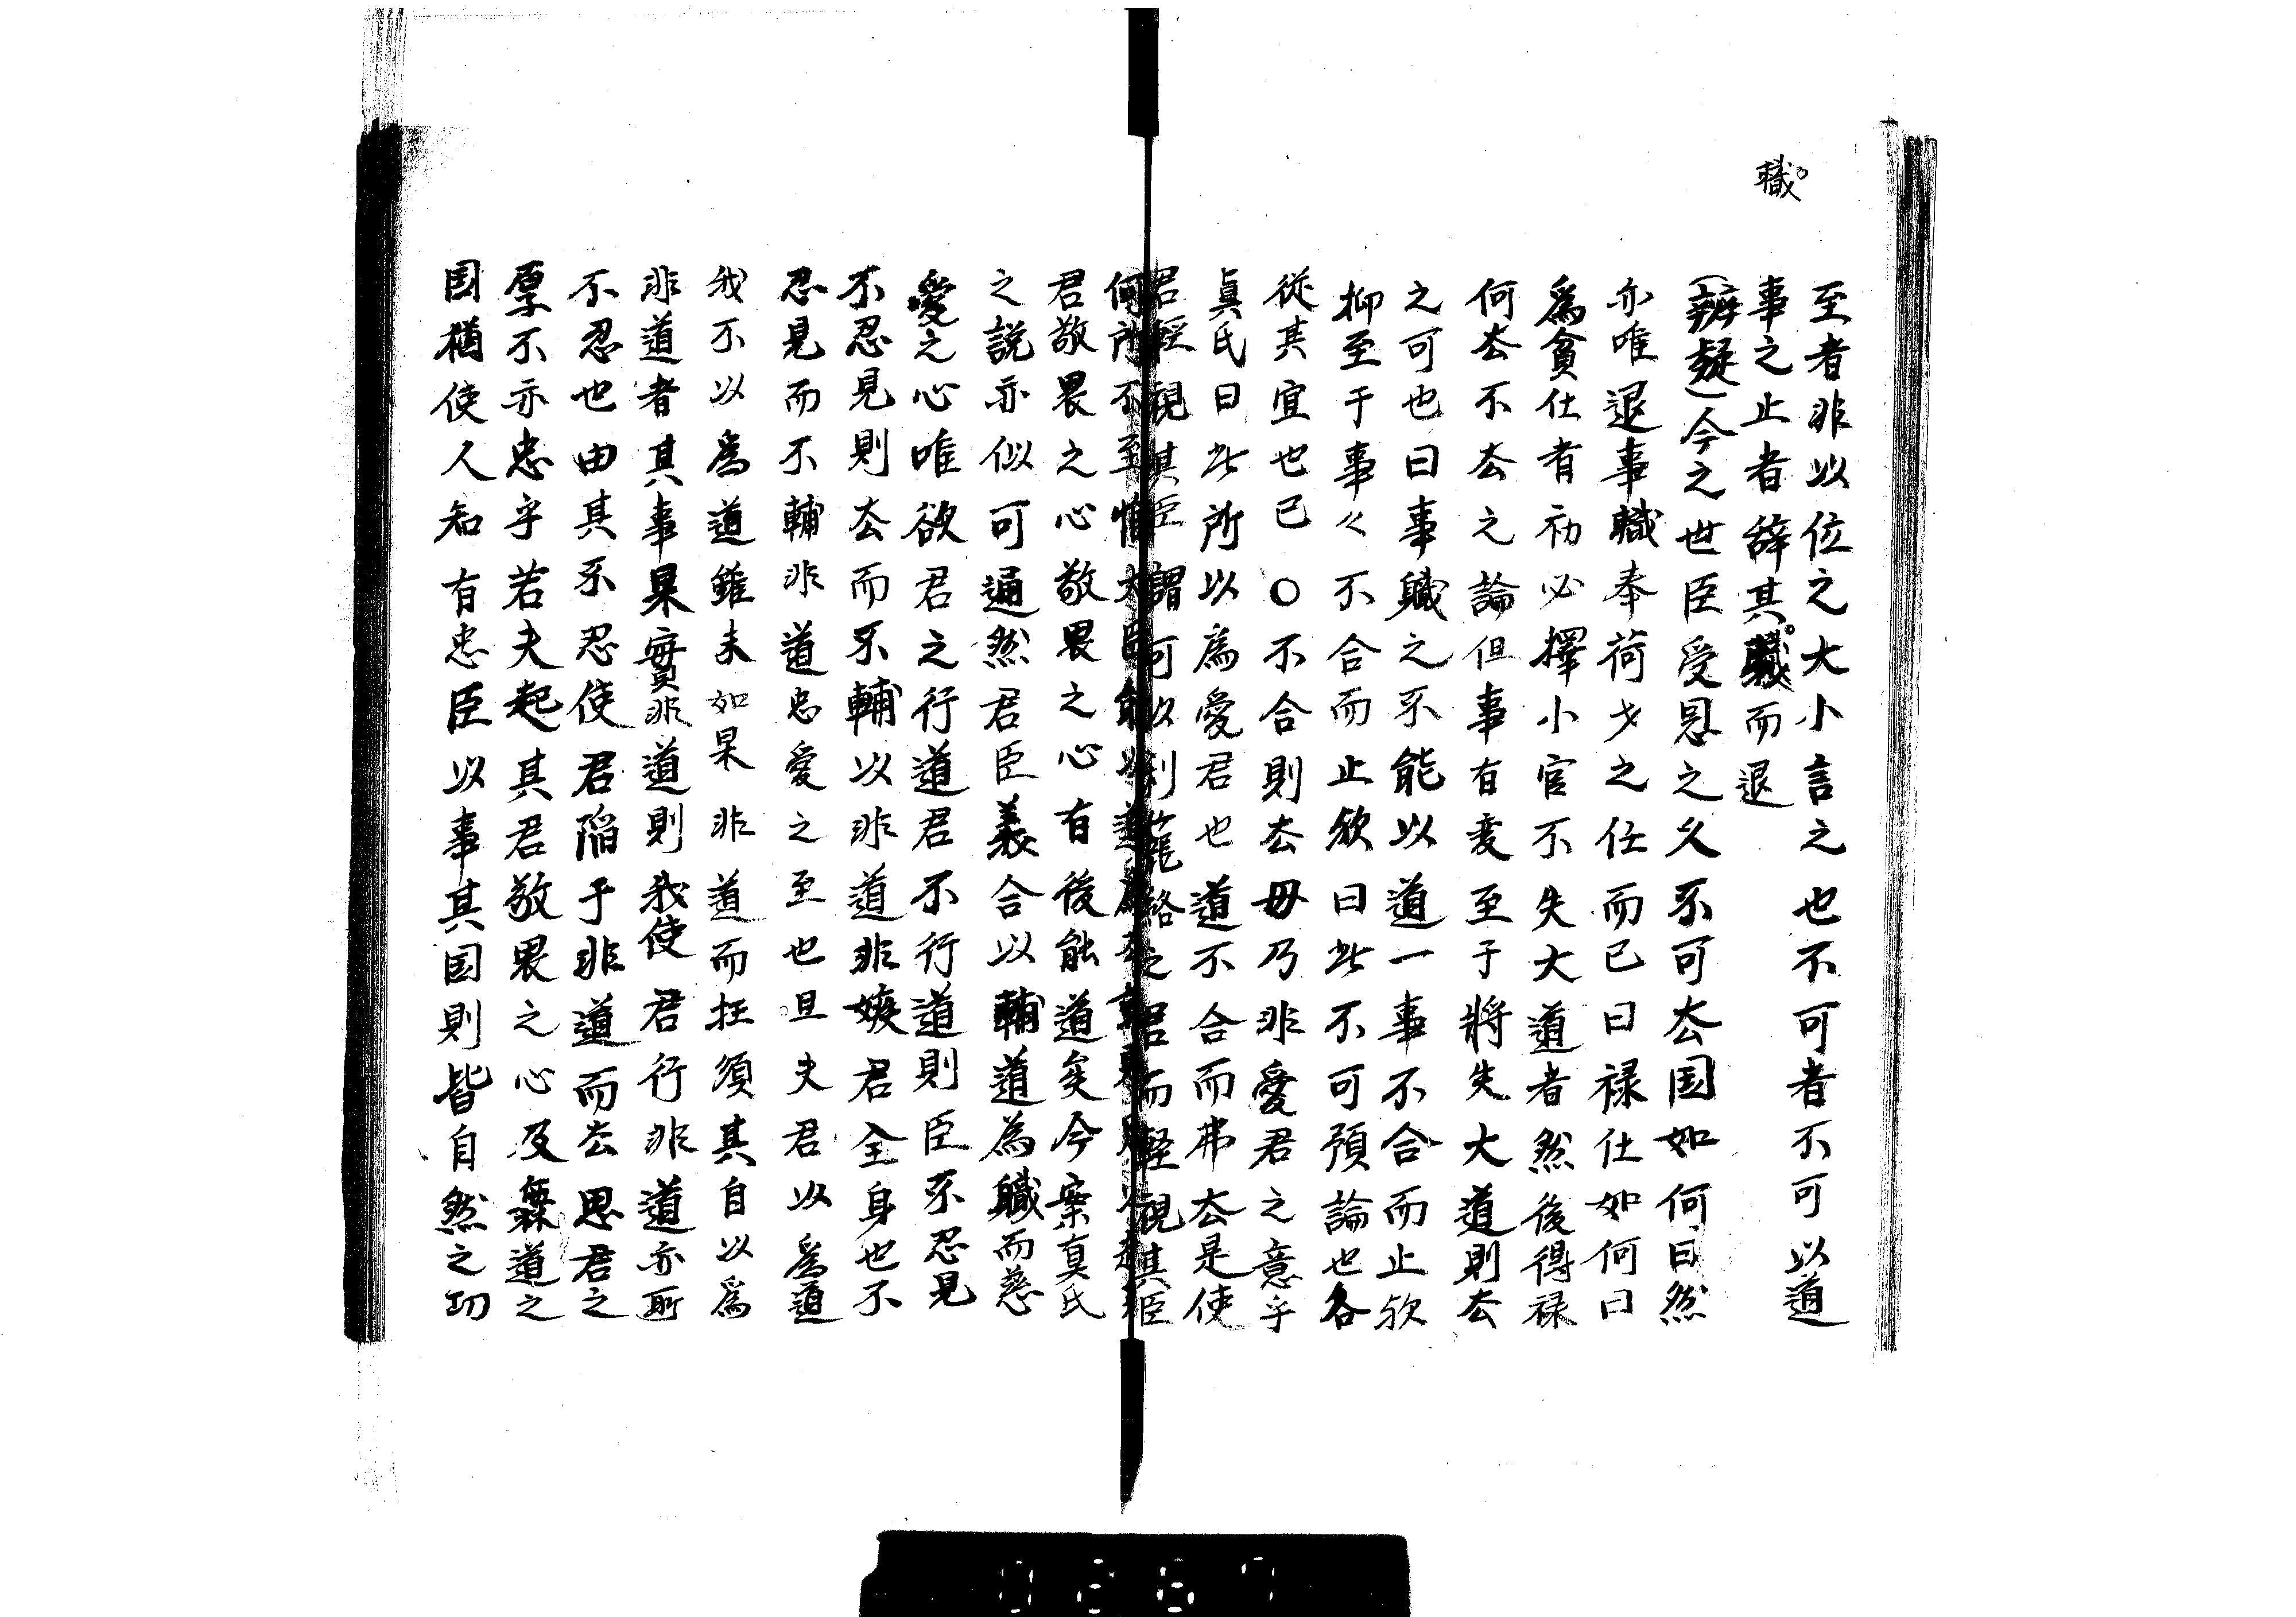 職
至者非以位之大小言之也不可者不可以道
事之止者辞其職而退
(辨疑)今之世臣受恩之久不可去国如何曰然
亦唯退事職奉荷才之任而已曰禄仕如何曰
為貧仕者初必擇小官不失大道者然後得禄
何去不去之論但事有変至于将失大道則去
之可也曰事職之不能以道一事不合而止欤
抑至于事々不合而止欤曰此不可預論也各
従其宜也已○不合則去毋乃非愛君之意乎
真氏曰此所以為愛君也道不合而弗去是使
君軽視其臣謂可以利籠絡之君而軽視其臣
何所不至惟大臣能以道為去
君敬畏之心敬畏之心有後能道矣今案真氏
之説亦似可通然君臣義合以輔道為職而慈
愛之心唯欲君之行道君不行道則臣不忍見
不忍見則去而不輔以非道非嫉君全身也不
忍見而不輔非道忠愛之至也且夫君以為道
我不以為道雖未如果非道而抂須其自以為
非道者其事果實非道則我使君行非道亦所
不忍也由其不忍使君陥于非道而去恩君之
厚不亦忠乎若夫起其君敬畏之心及無道之
国猶使人知有忠臣以事其国則皆自然之功